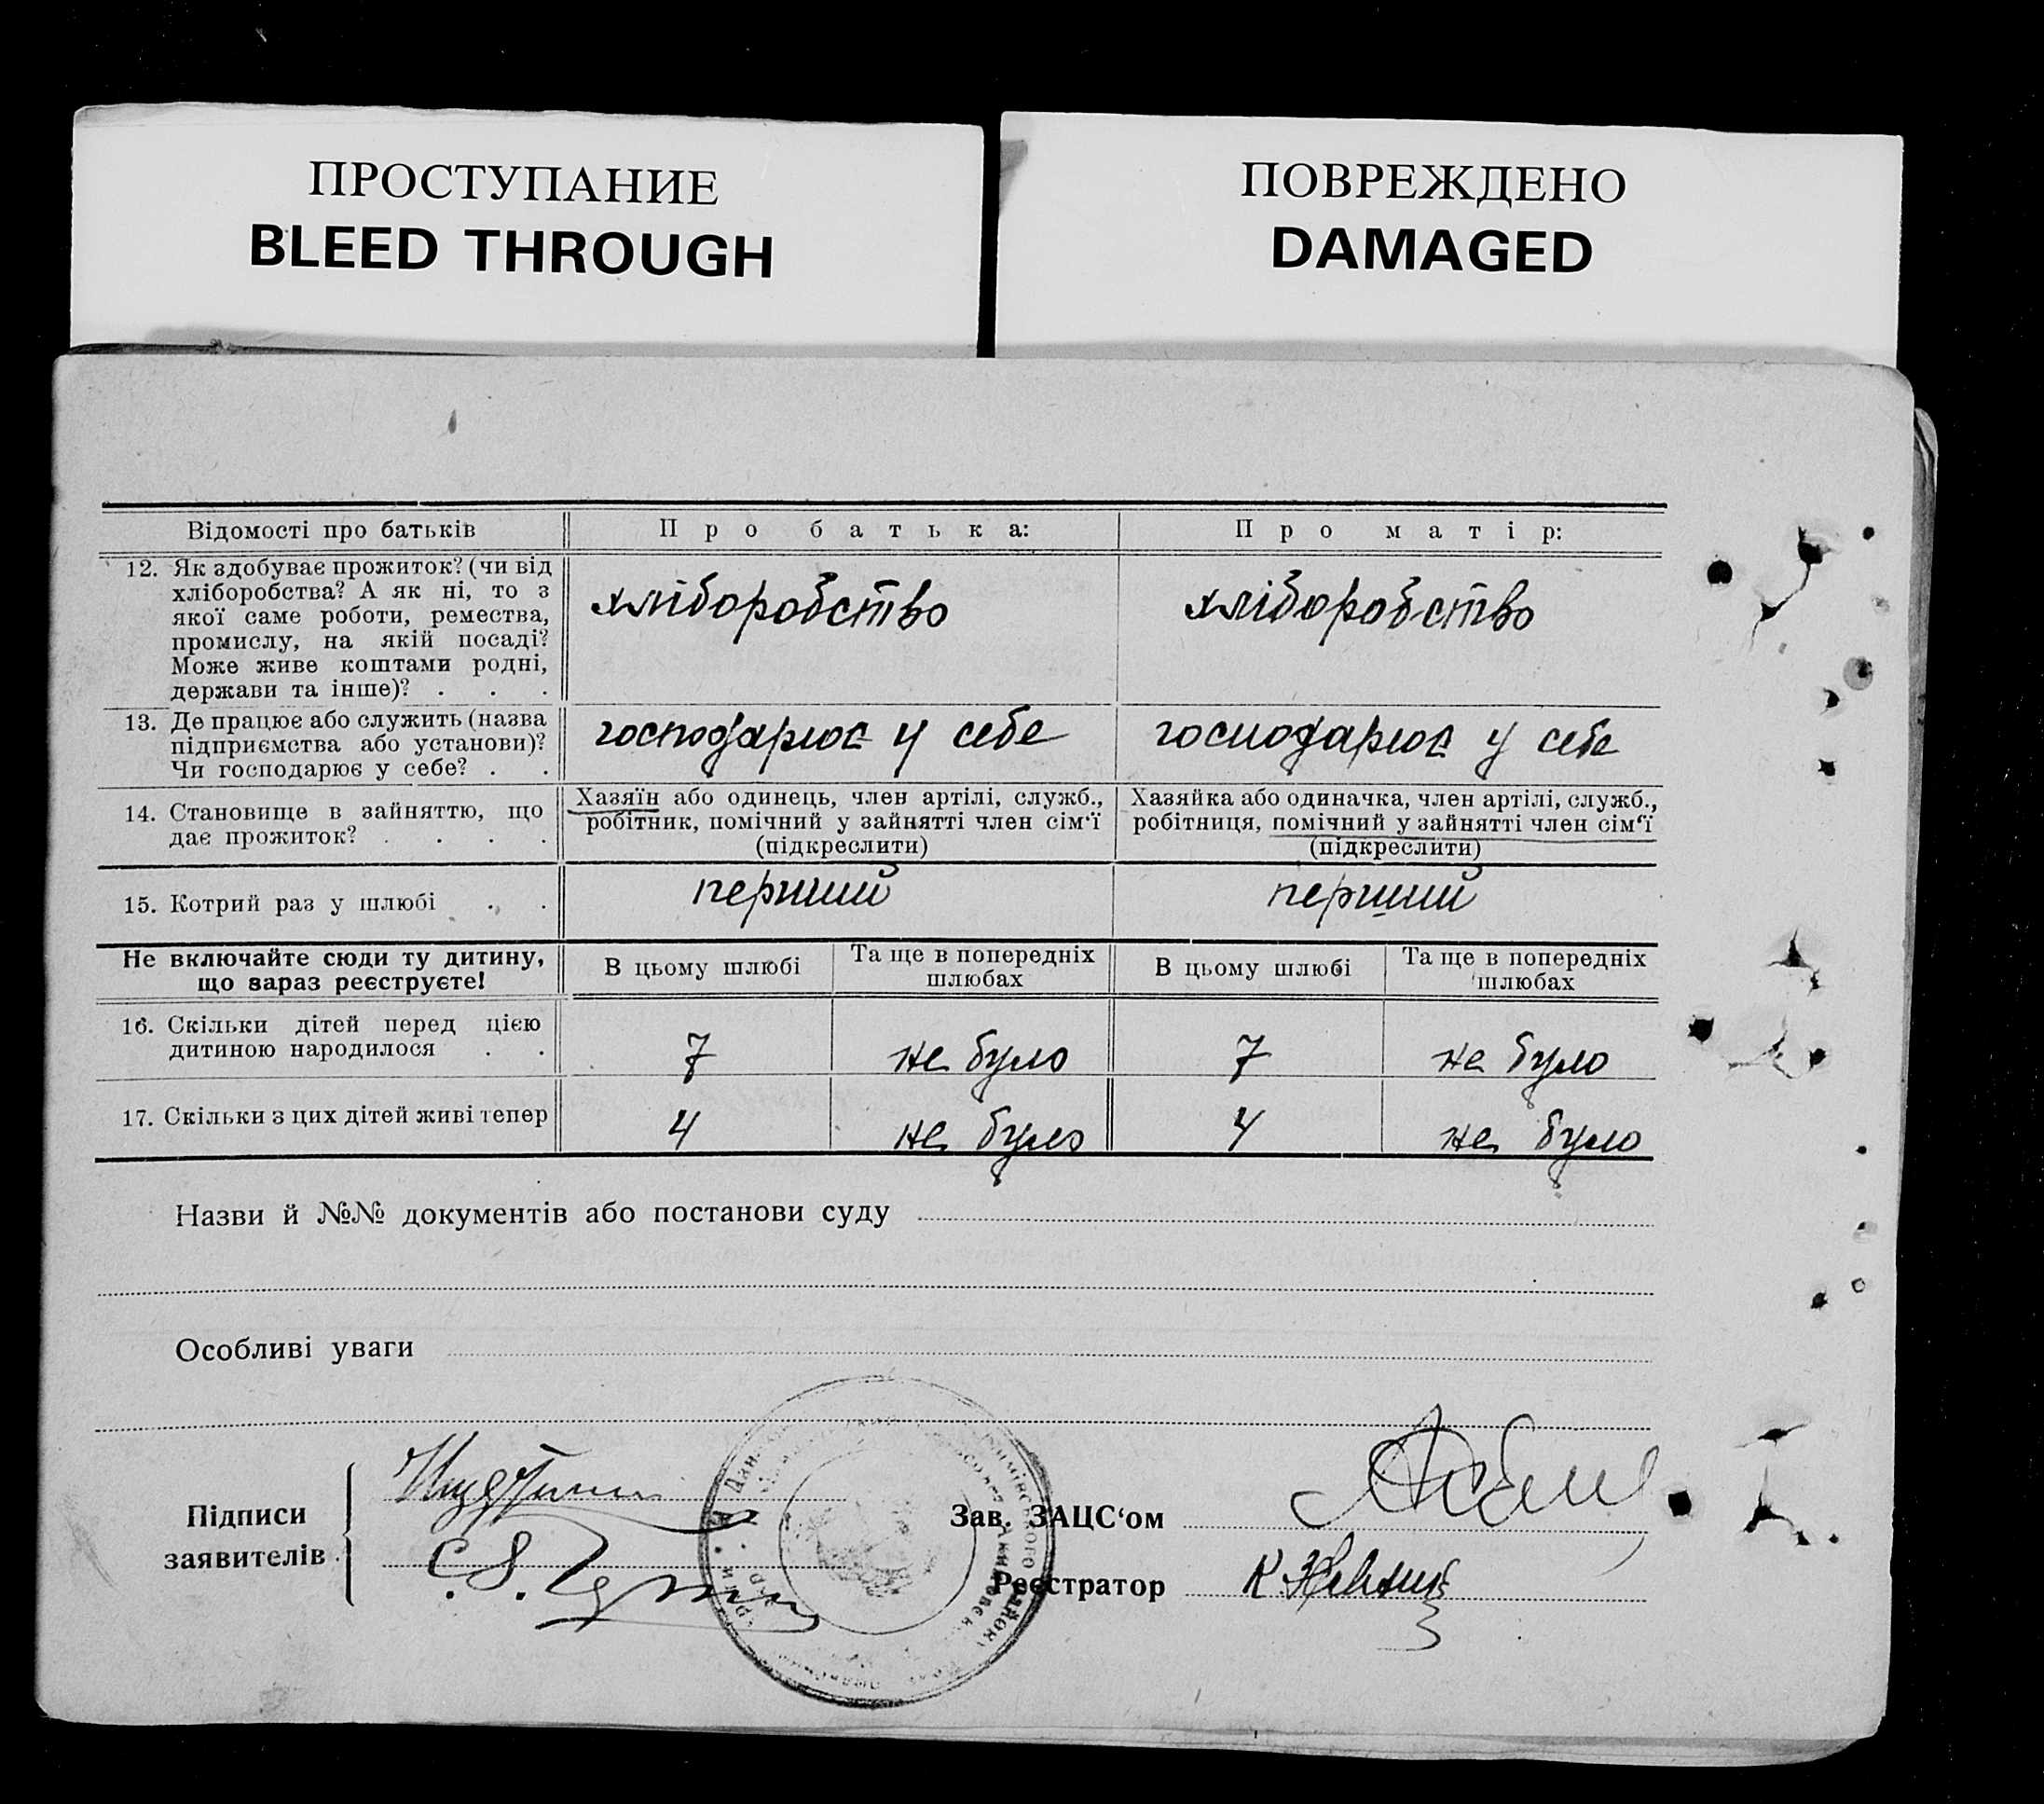 ПРОСТУПАНИЕ
BLEED THROUGH
ПОВРЕЖДЕНО
DAMAGED
Відомості про батьків
Про батька:
Про матір:
12. Як здобуває прожиток? (чи від
хліборобства? А як ні, то з
якої саме роботи, ремества,
промислу, на якій посаді?
Може живе коштами родні,
держави та інше)? . . .
хліборобство
хліборобство
13. Де працює або служить (назва
підприємства або установи)?
Чи господарює у себе? . .
господарює у себе
господарює у себе
14. Становище в зайняттю, що
дає прожиток? . . . .
Хазяїн або одинець, член артілі, служб.,
робітник, помічний у зайнятті член сім‘ї
(підкреслити)
Хазяйка або одиначка, член артілі, служб.,
робітниця, помічний у зайнятті член сім‘ї
(підкреслити)
15. Котрий раз у шлюбі . .
перший
перший
Не включайте сюди ту дитину,
що зараз реєструєте!
В цьому шлюбі
Та ще в попередніх
шлюбах
В цьому шлюбі
Та ще в попередніх
шлюбах
16. Скільки дітей перед цією
дитиною народилося . .
7
не було
7
не було
17. Скільки з цих дітей живі тепер
4
не було
4
не було
Назви й №№ документів або постанови суду
Особливі уваги
Підписи
заявителів
Зав. ЗАЦС‘ом
Реєстратор